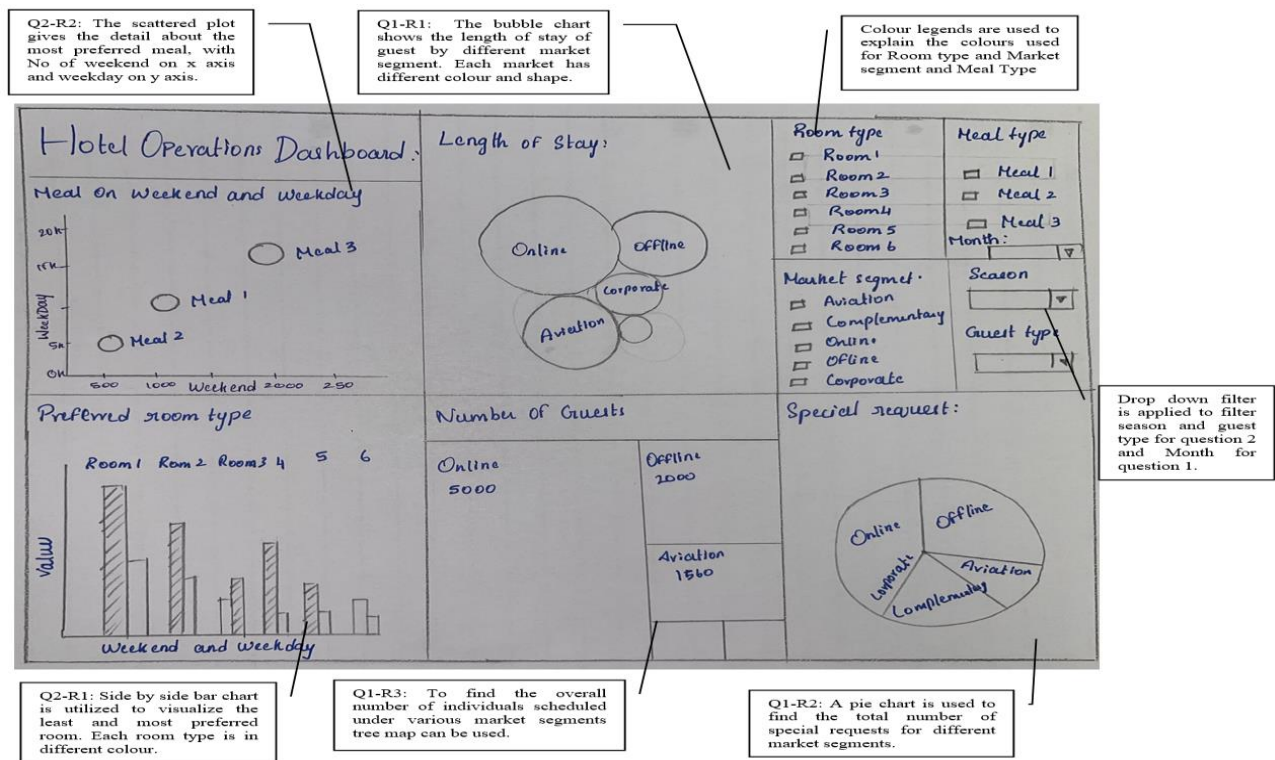 Q2-R2: The scattered plot
gives the detail about the
most preferred meal, with
No of weekend on x axis
and weekday on y axis.
Q1-R1: The bubble chart
shows the length of stay of
guest by different market
segment. Each market has
different colour and shape.
Colour legends are used to
explain the colours used
for Room type and Market
segment and Meal Type
Hotel Operations Dashboard:
Meal On Weekend and Weekday
20K
15K
5K
0K
WeekDay
Meal 3
Meal 1
Meal 2
500 1000 Weekend 2000 250
Length of Stay:
Online
Offline
Corporate
Aviation
Room type
Room 1
Room 2
Room 3
Room 4
Room 5
Room 6
Meal type
Meal 1
Meal 2
Meal 3
Month:
Market segmet.
Aviation
Complementary
Online
Ofline
Corporate
Season
Guest type
Drop down filter
is applied to filter
season and guest
type for question 2
and Month for
question 1.
Preferred room type
Room 1 Rom 2 Room 3 4 5 6
Value
Weekend and Weekday
Number of Guests
Online
5000
Offline
2000
Aviation
1560
Special request:
Online
Offline
Aviation
Complementary
Corporate
Q2-R1: Side by side bar chart
is utilized to visualize the
least and most preferred
room. Each room type is in
different colour.
Q1-R3: To find the overall
number of individuals scheduled
under various market segments
tree map can be used.
Q1-R2: A pie chart is used to
find the total number of
special requests for different
market segments.